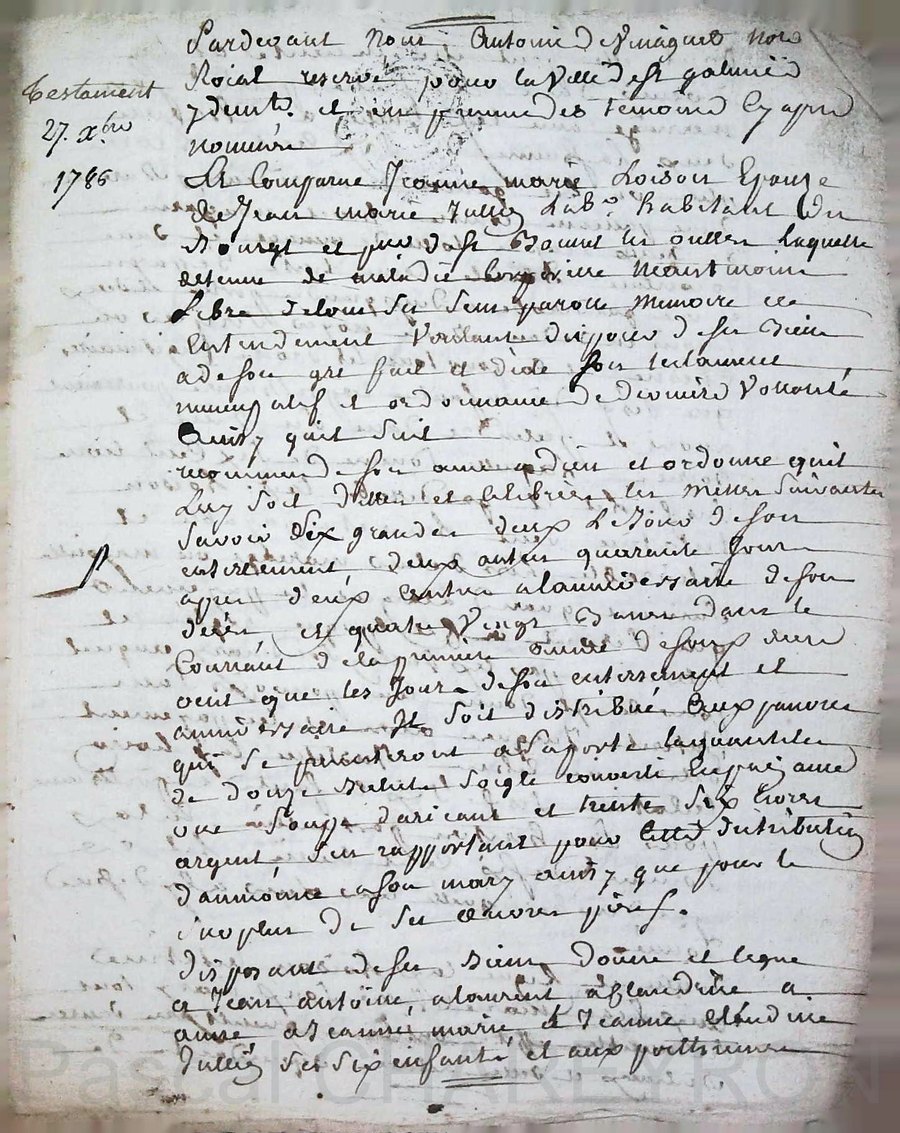 Pardevant Nous Antoine Denis
Roial reservé pour la Ville de St galmier
Testament
27. xbre
1786
et en presence des temoins cy apres
nommés
Est Comparue Jeanne marie Loison Epouze
de Jean marie Jullien Labr. habitant du
Bourgt et parr de St Bonnet les oulles laquelle
detenue de maladie corporelle Neantmoins
Libre de tous ses sens parolle memoire et
Entendement Voulant disposer de ses Biens
a de son gré fait et dicté son testament
nuncupatif et ordonnance de derniere Vollonté
Ainsy quil Suit
recommande son ame a dieu et ordonne quil
Luy soit dittes et celebrées les Messes Suivantes
Savoir Six grandes deux Le Jour de son
enterrement deux autres quarante Jours
apres deux autres a lanniversaire de son
decès et quatre Vingt Basses dans le
Courrant de la premiere année de son deces
veut que les Jours de son enterrement et
anniversaire Il soit distribué Aux pauvres
qui se presenteront a Sa porte la quantité
de douze Bichets Soigle converti en pain avec
une Soupe daricaut et trente Six livres
argent Sen rapportant pour cette distribution
daumone a son mary ainsy que pour le
Surplus de ses oeuvres pies.
disposant de ses Biens donne et legue
a Jean antoine, a laurent, a Claudine a
anne a Jeanne marie et Jeanne Claudine
Jullien Ses Six enfants et aux posthumes
Pascal CHAREYRON